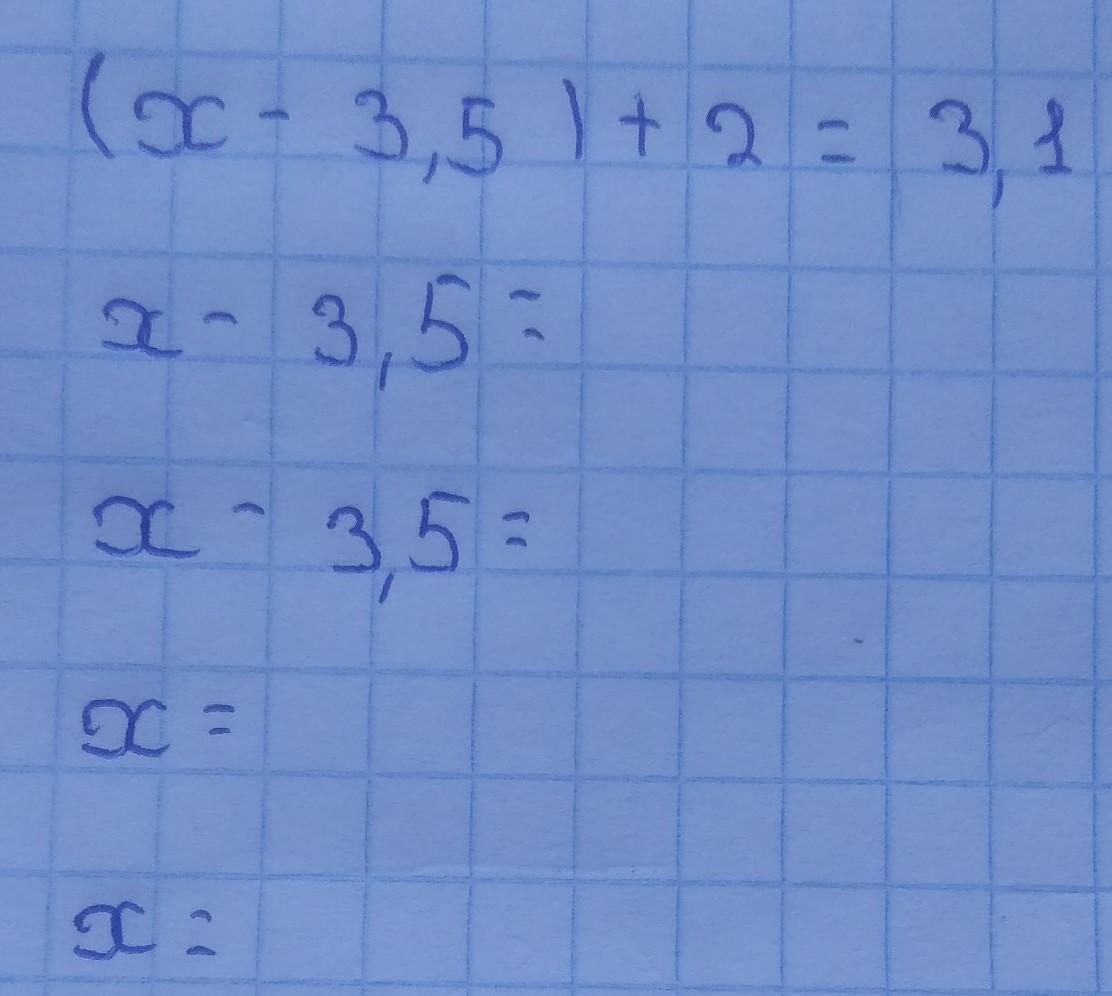 (x - 3,5) + 2 = 3,1
x - 3,5 =
x - 3,5 =
x =
x =